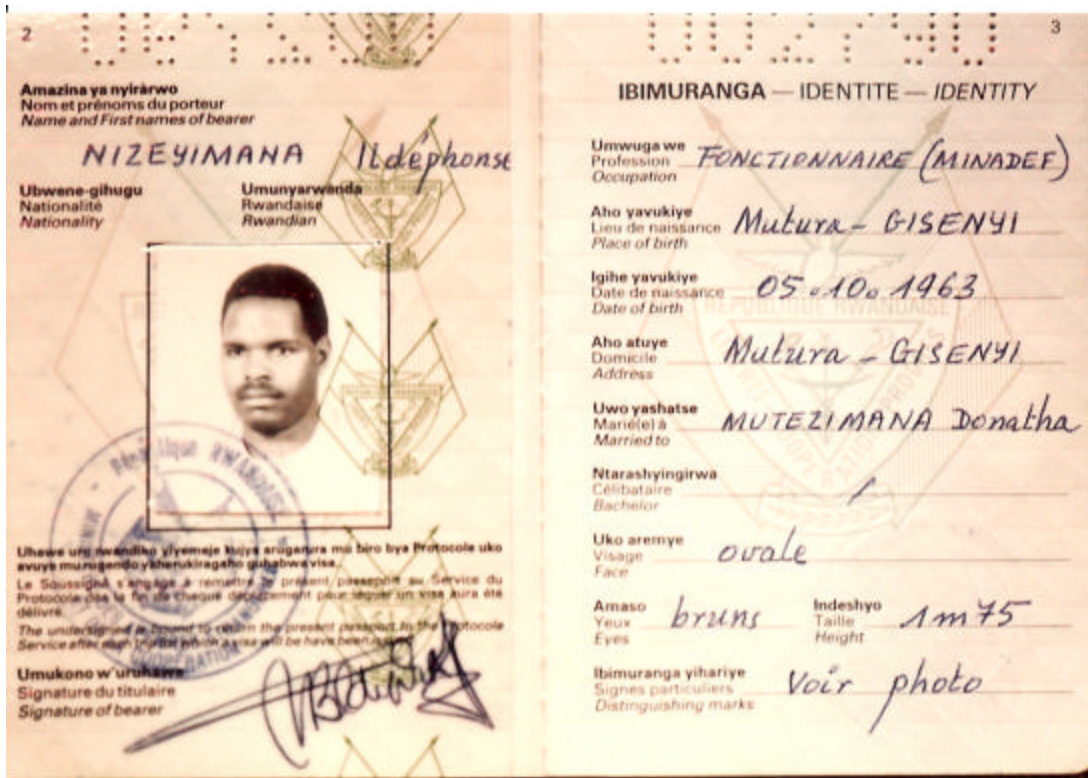 2
Amazina ya nyiràrwo
Nom et prénoms du porteur
Name and First names of bearer
NIZEYIMANA Ildéphonse
Ubwene-gihugu
Nationalité
Nationality
Umunyarwanda
Rwandaise
Rwandian
Uhawe uru rwandiko yiyemeje kujya arugarura mu biro bya Protocole uko
avuye mu rugendo yaherukiragaho guhabwa visa
Le Soussigné s'engage à remettre le présent passeport au Service du
Protocole dès la fin de chaque déplacement pour lequel un visa aura été
délivré.
The undersigned is bound to return the present passport to the Protocole
Service after each trip for which a visa will be have been
Umukono w'uruhawe
Signature du titulaire
Signature of bearer
République RWANDAISE
COOPERATION
3
IBIMURANGA — IDENTITE — IDENTITY
Umwuga we
Profession FONCTIONNAIRE (MINADEF)
Occupation
Aho yavukiye
Lieu de naissance Mutura - GISENYI
Place of birth
Igihe yavukiye
Date de naissance 05.10.1963
Date of birth
Aho atuye
Domicile Mutura - GISENYI
Address
Uwo yashatse
Marié(e) à MUTEZIMANA Donatha
Married to
Ntarashyingirwa
Célibataire /
Bachelor
Uko aremye
Visage ovale
Face
Amaso
Yeux bruns
Eyes
Indeshyo
Taille 1m75
Height
Ibimuranga yihariye
Signes particuliers Voir photo
Distinguishing marks
REPUBLIQUE RWANDAISE